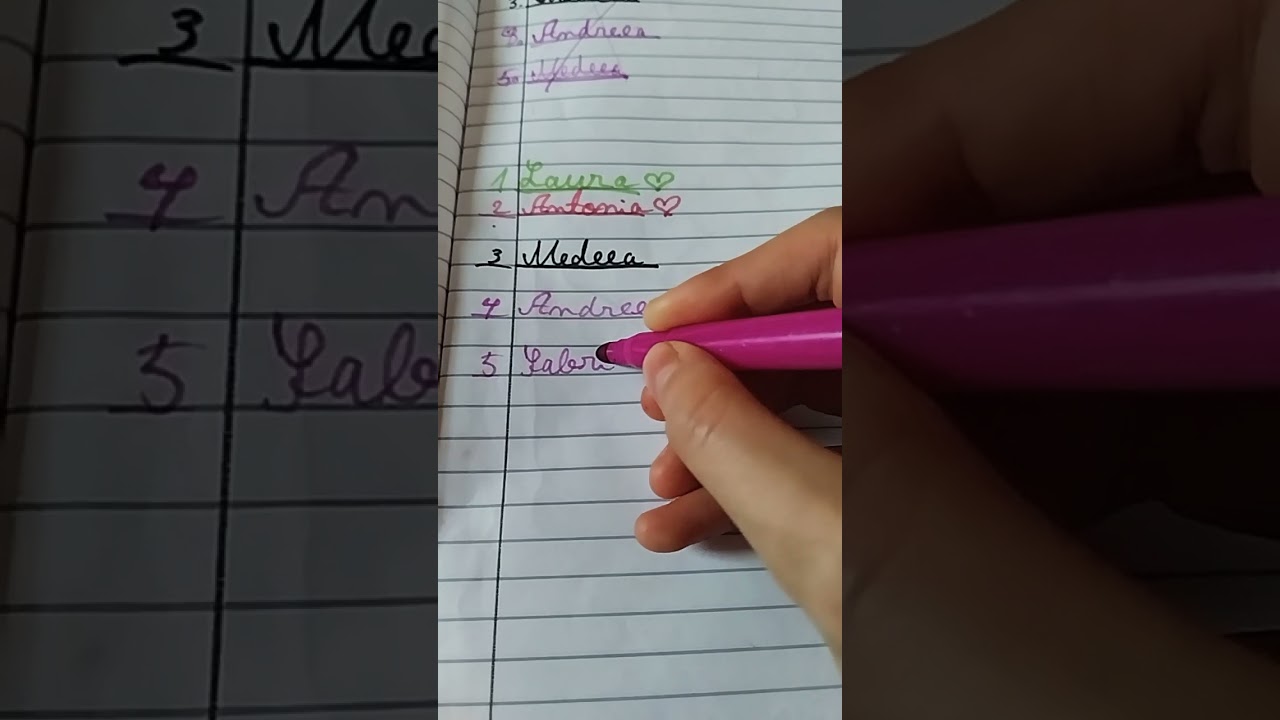 3.
4. Andreea
5. Medeea
1 Laura ♡
2 Antonia ♡
3 Medeea
4 Andree
5 Gabri